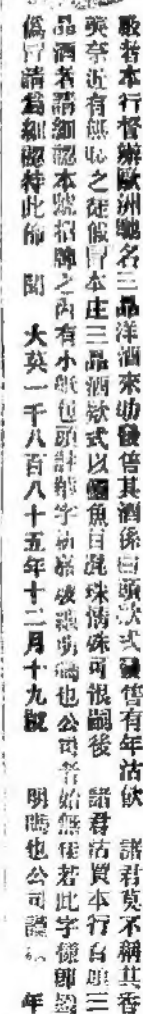 敬者本行督辦歐洲馳名三品洋酒來叻發售其酒係白頭欵式發售有年沽飲 諸君莫不稱其香
美奈近有無恥之徒假冒本庄三品酒欵式以魚目混珠情殊可恨嗣後 諸君沽買本行白頭三
品酒者請細認本號招牌之內有小紙包頭計四字 也公司者始無 若此字樣即
偽冒請為細認特此佈 聞 大英一千八百八十五年十二月十九號 明 也公司謹 年